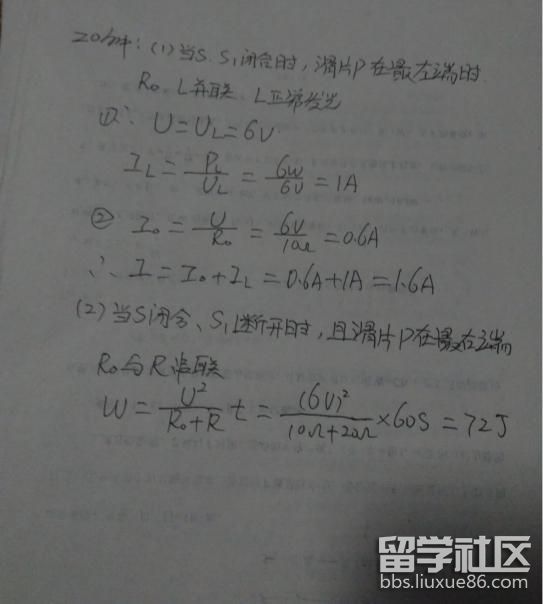 20解:(1)当S、S₁闭合时,滑片P在最左端时
R₀、L并联、L正常发光
①∴ U=U_L=6V
I_L=P_L/U_L=6W/6V=1A
② I₀=U/R₀=6V/10Ω=0.6A
∴ I=I₀+I_L=0.6A+1A=1.6A
(2)当S闭合、S₁断开时,且滑片P在最右端
R₀与R串联
W=U²/(R₀+R) t=(6V)²/(10Ω+20Ω)×60S=72J
留学社区
bbs.liuxue86.com